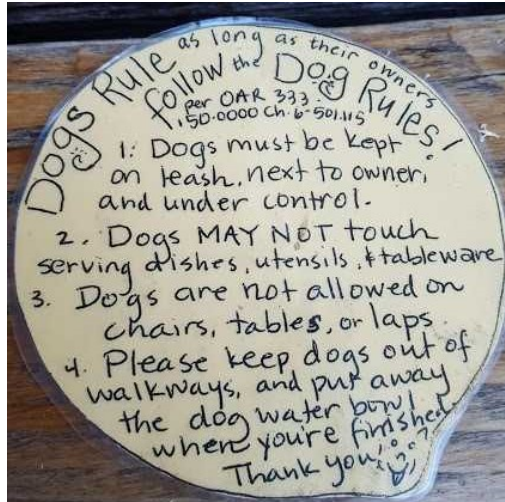 Dogs Rule as long as their owners
follow the Dog Rules!
per OAR 333-
150-0000 Ch. 6-501.115
1. Dogs must be kept
on leash, next to owner,
and under control.
2. Dogs MAY NOT touch
serving dishes, utensils, & tableware
3. Dogs are not allowed on
chairs, tables, or laps
4. Please keep dogs out of
walkways, and put away
the dog water bowl
when you're finished
Thank you!